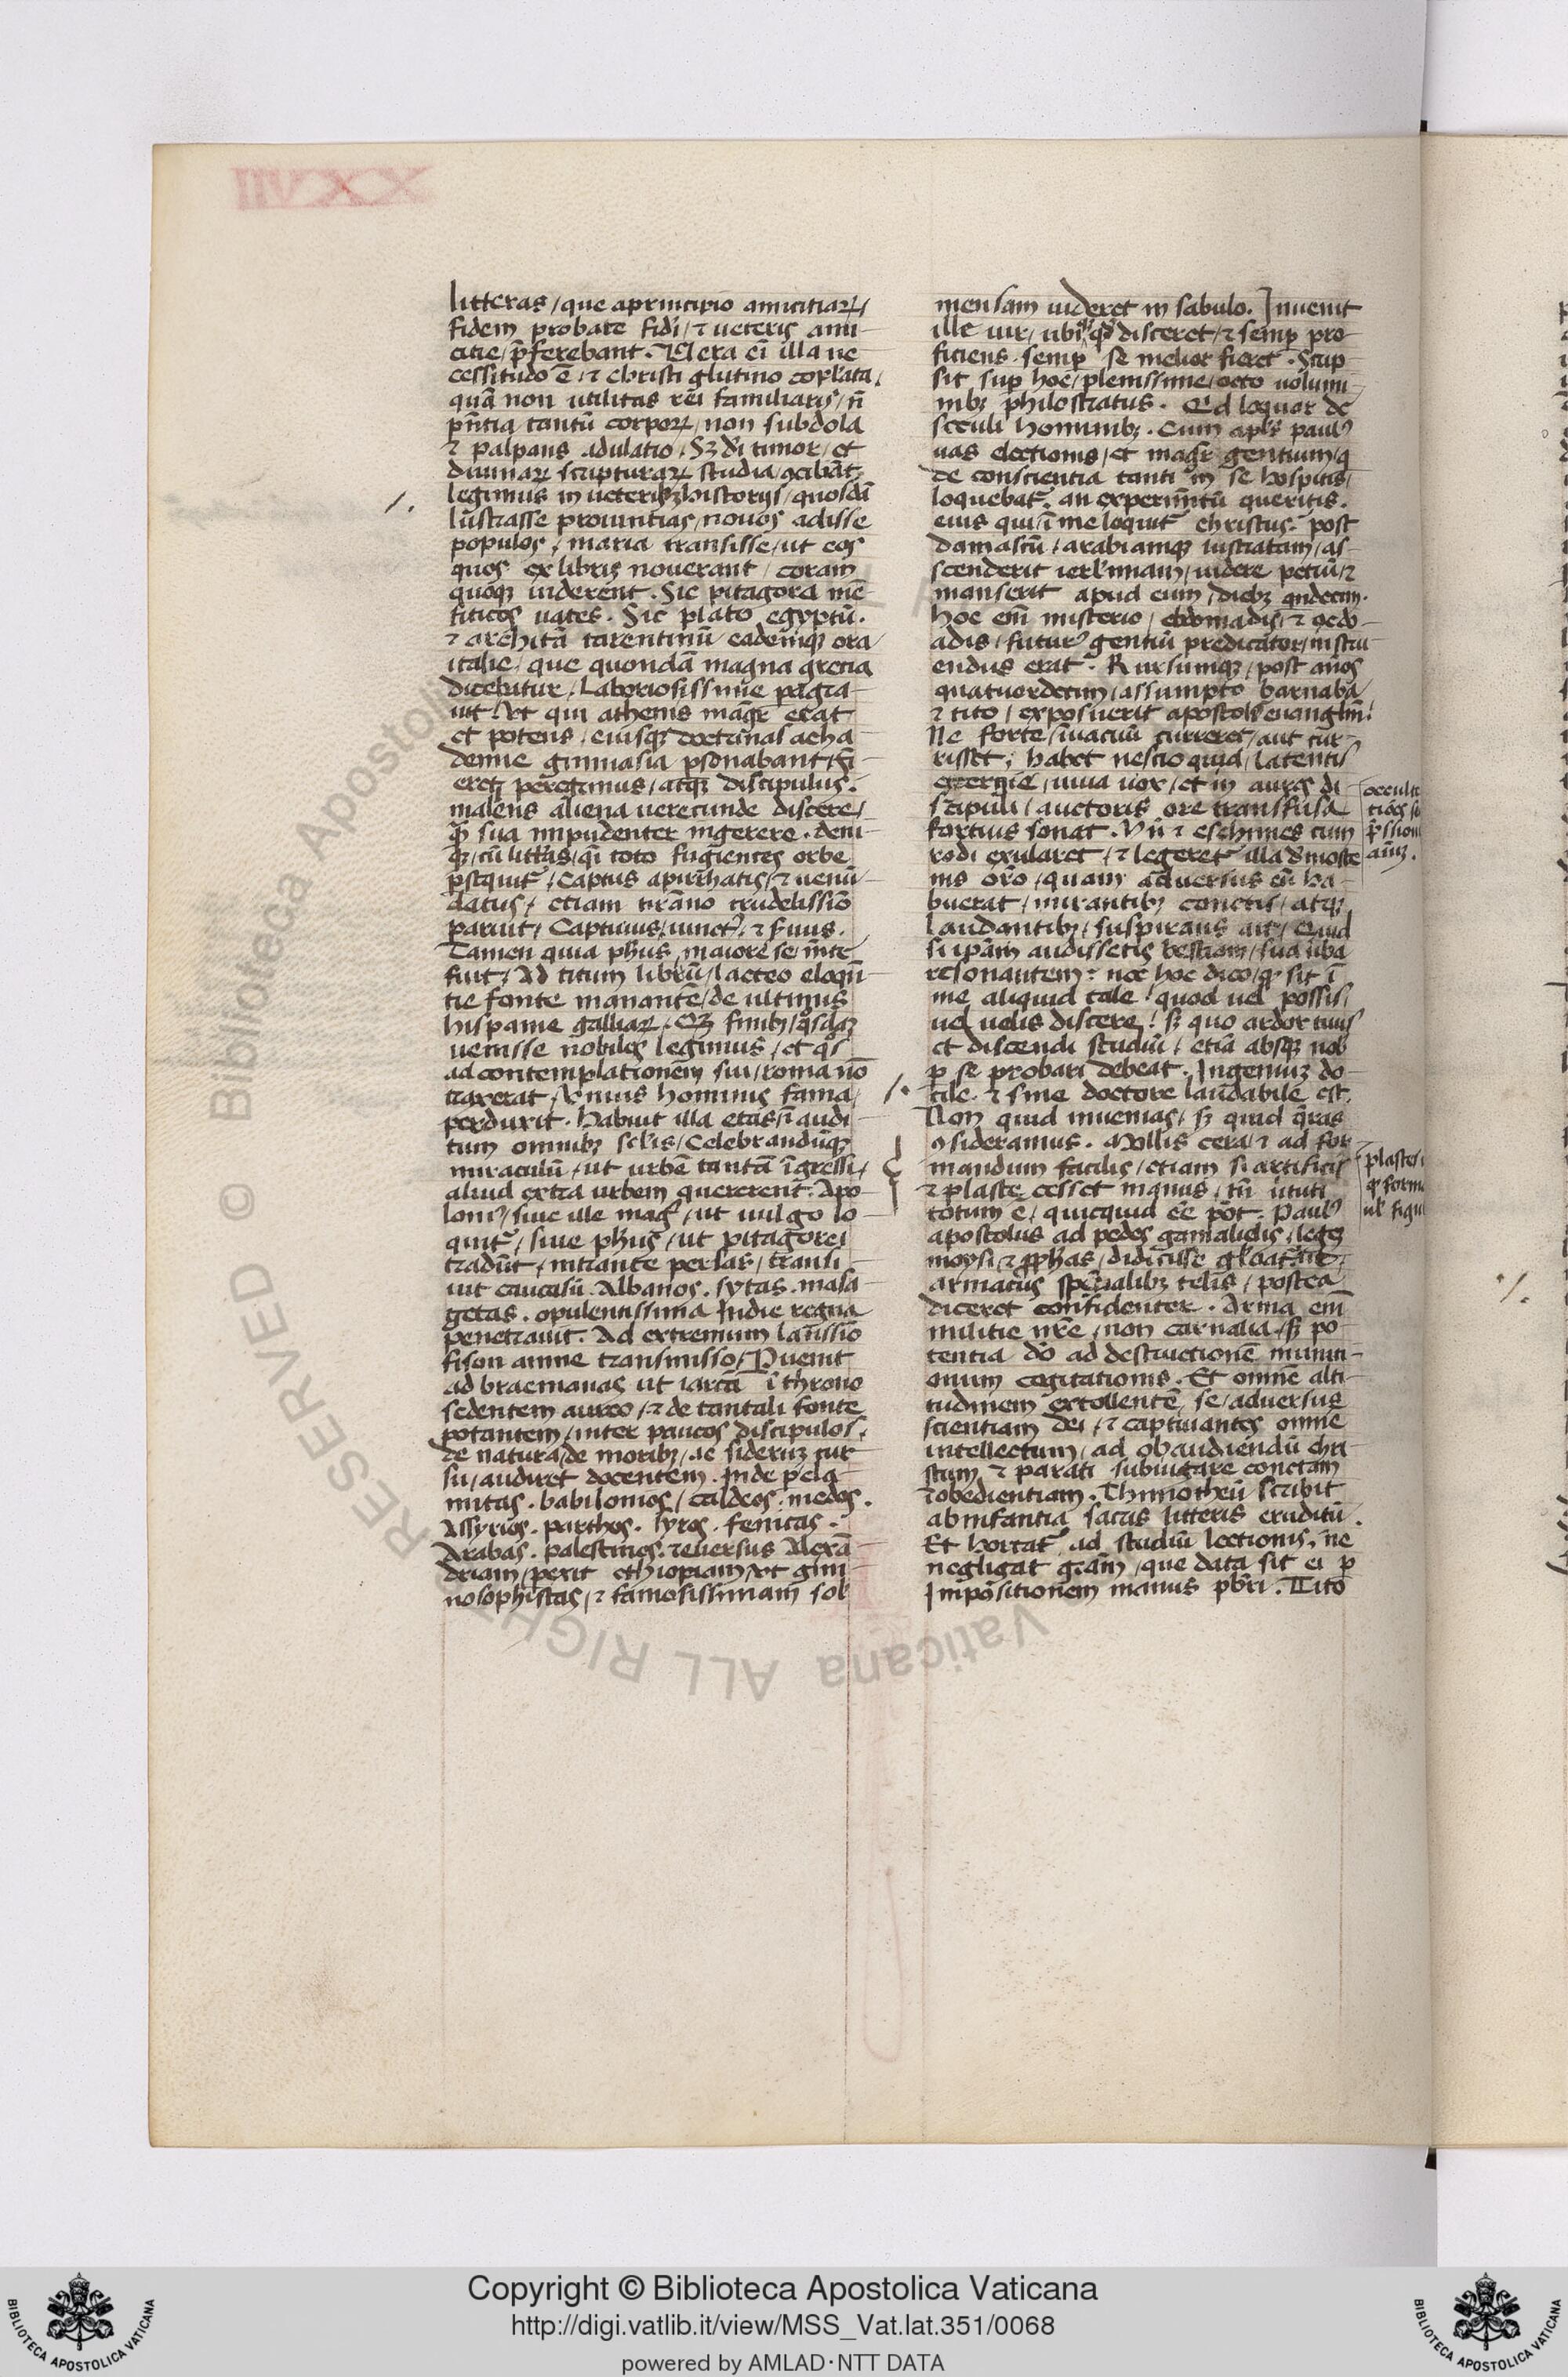 XXVII
litteras / que a principio amicitiaꝝ /
fidem probate fidi / ⁊ ueteris ami-
citie / p̄ferebant. Uera ei illa ne
cessitudo ē / ⁊ christi glutino copl'ata /
quā non utilitas rei familiaris / n̄
pn̄tia tantū corpoꝝ / non subdola
⁊ palpans adulatio / Sꝫ di timor / et
diuinaꝝ scripturaꝝ studia / ꝯciliāt
legimus in ueteribꝫ historijs / quosdā
lustrasse prouintias / nouos adisse
populos / maria transisse / ut eos
quos ex libris nouerant / coram
quoqꝫ uiderent. Sic pitagora mē-
fiticos uates. Sic plato egyptū.
⁊ architā tarentinū eademqꝫ ora
italie / que quondā magna grecia
dicebatur / Laboriosissime pagra-
uit Vt qui athenis magr̄ erat
et potens / cuiusqꝫ doctrinas acha
demie gimnasia psonabant / fi
eret peregrinus / atqꝫ discipulus.
malens aliena uerecunde discere /
qꝫ sua impudenter ingerere. deni-
qꝫ / cū litt̄as / qi toto fugientes orbe
psequit̄ / Captus apirrhatis / ⁊ uenū
datus / etiam tirāno crudelissīo
paruit / Captiuus / uinct9 / ⁊ seruus.
Tamen quia ph̄us / maiore se / em̄te
fuit / Ad titum libiū / lacteo eloquē
tie fonte manantē / de ultimis
hispanie galliaꝝ. Qꝫ finibꝫ / qsdaꝫ
uenisse nobiles legimus / et qs
ad contemplationem sui / roma nō
traxerat / Vnius hominis fama /
perduxit. Habuit illa etas / īaudi
tum omnibꝫ sclis / Celebrandūqꝫ
miraculū / ut urbē tantā īgressi /
aliud extra urbem quererent. Apo
loni9 / siue ille mag9 / ut uulgo lo-
quit̄ / siue ph̄us / ut pitagorei
tradūt / intrante persas / transi-
uit caucasū. Albanos. sytas. masa
getas. opulentissima Indie regna
penetrauit. Ad extremum latissīo
fison amne transmisso / Puenit
ad bracmanas ut iarcā ī throno
sedentem aureo / ⁊ de tantali fonte
potantem / inter paucos discipulos.
de natura / de moribꝫ / ac sideruꝫ cur
su / audiret docentem. Inde p ela-
mitas. babilonios / caldeos. medos.
Assyrios. parthos. syros. fenicas.
Arabas. palestinos. reuersus Alexā
driam / perit ethiopiam / vt gim
nosophistas / ⁊ famosissimam sol'
mensam uideret in sabulo. Inuenit
ille uir / ubiqꝫ qd disceret / ⁊ semp pro
ficiens. semp se melior fieret. Scrip
sit sup hoc / plenissime / octo uolumi
nibꝫ philostratus. Qd loquar de
seculi hominibꝫ. Cum apl's paul9
uas electionis / et magr̄ gentium / q
de conscientia tanti in se hospitis /
loquebat̄. an experimētū queritis.
eius qui ī me loquit̄ christus? post
damascū / arabiamqꝫ lustratam / as-
scenderit ierl'imam / uidere petrū / ⁊
manserit apud eum / diebꝫ qndecim.
Hoc em̄ misterio / ebdomadis / ⁊ ogdo-
adis / futur9 gentiū predicator / instru-
endus erat. Rursumqꝫ / post ānos
quatuordecim / assumpto barnaba /
⁊ tito / exposuerit apostolis euangliū!
Ne forte / ī uacuū curreret / aut cur-
risset; habet nescio quid / latentis
energie / uiua uox / et in aures di-
scipuli / auctoris ore transfusa
fortius sonat. Vn̄ ⁊ eschines cum
rodi exularet / ⁊ legeret̄ illa demoste
nis oro / quam aduersus eū ha-
buerat / mirantibꝫ cunctis / atqꝫ
laudantibꝫ / suspirans ait / Quid
si ip̄am audissetis bestiam / sua ūba
resonantem? nec hoc dico / qꝫ sit ī
me aliquid tale! quod uel possis /
uel uelis discere! sꝫ quo ardor tuus
et discendi studiū / etiā absqꝫ nob
p se probari debeat. Ingeniuꝫ do-
cile. ⁊ sine doctore laudabile est.
Non quid inuenias / sꝫ quid q̄ras
ꝯsideramus. Mollis cera / ⁊ ad for
mandum facilis / etiam si artificis
⁊ plaste cesset manus / tn̄ ūtuti
totum ē / quicquid ēē pōt. Paul9
apostolus ad pedes gamalielis / legē
moysi / ⁊ ꝓphas / didicisse gl'oat̄. ut
armatus spūalibꝫ telis / postea
diceret confidenter. Arma em̄
militie nr̄e / non carnalia / sꝫ po-
tentia dō ad destructionē muniti-
onum cogitationis. Et omnē alti-
tudinem extollentē se / aduersus
scientiam dei / ⁊ captiuantes omnē
intellectum / ad obaudiendū chri-
stum ⁊ parati subiugare cunctam
īobedientiam. Thimotheū scribit
ab infantia sacris litteris eruditū.
Et hortat̄ ad studiū lectionis, ne
negligat grām / que data sit ei p
Impositionem manus pb̄ri. Tito
plaste
ul' figu
Copyright © Biblioteca Apostolica Vaticana
http://digi.vatlib.it/view/MSS_Vat.lat.351/0068
powered by AMLAD·NTT DATA
BIBLIOTECA APOSTOLICA VATICANA
BIBLIOTECA APOSTOLICA VATICANA
Biblioteca Apostolica Vaticana ALL RIGHTS RESERVED ©